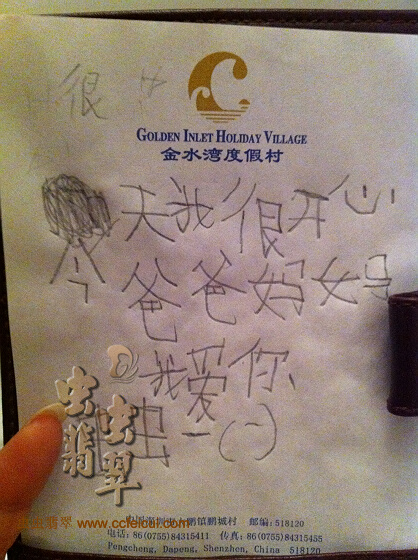 很
GOLDEN INLET HOLIDAY VILLAGE
金水湾度假村
今天我很开心
爸爸妈妈
我爱你、
虫虫翡翠
翡翠 www.ccfeicui.com
中国深圳市大鹏镇鹏城村 邮编:518120
电话:86(0755)84315411 传真:86(0755)84315455
Pengcheng, Dapeng, Shenzhen, China 518120